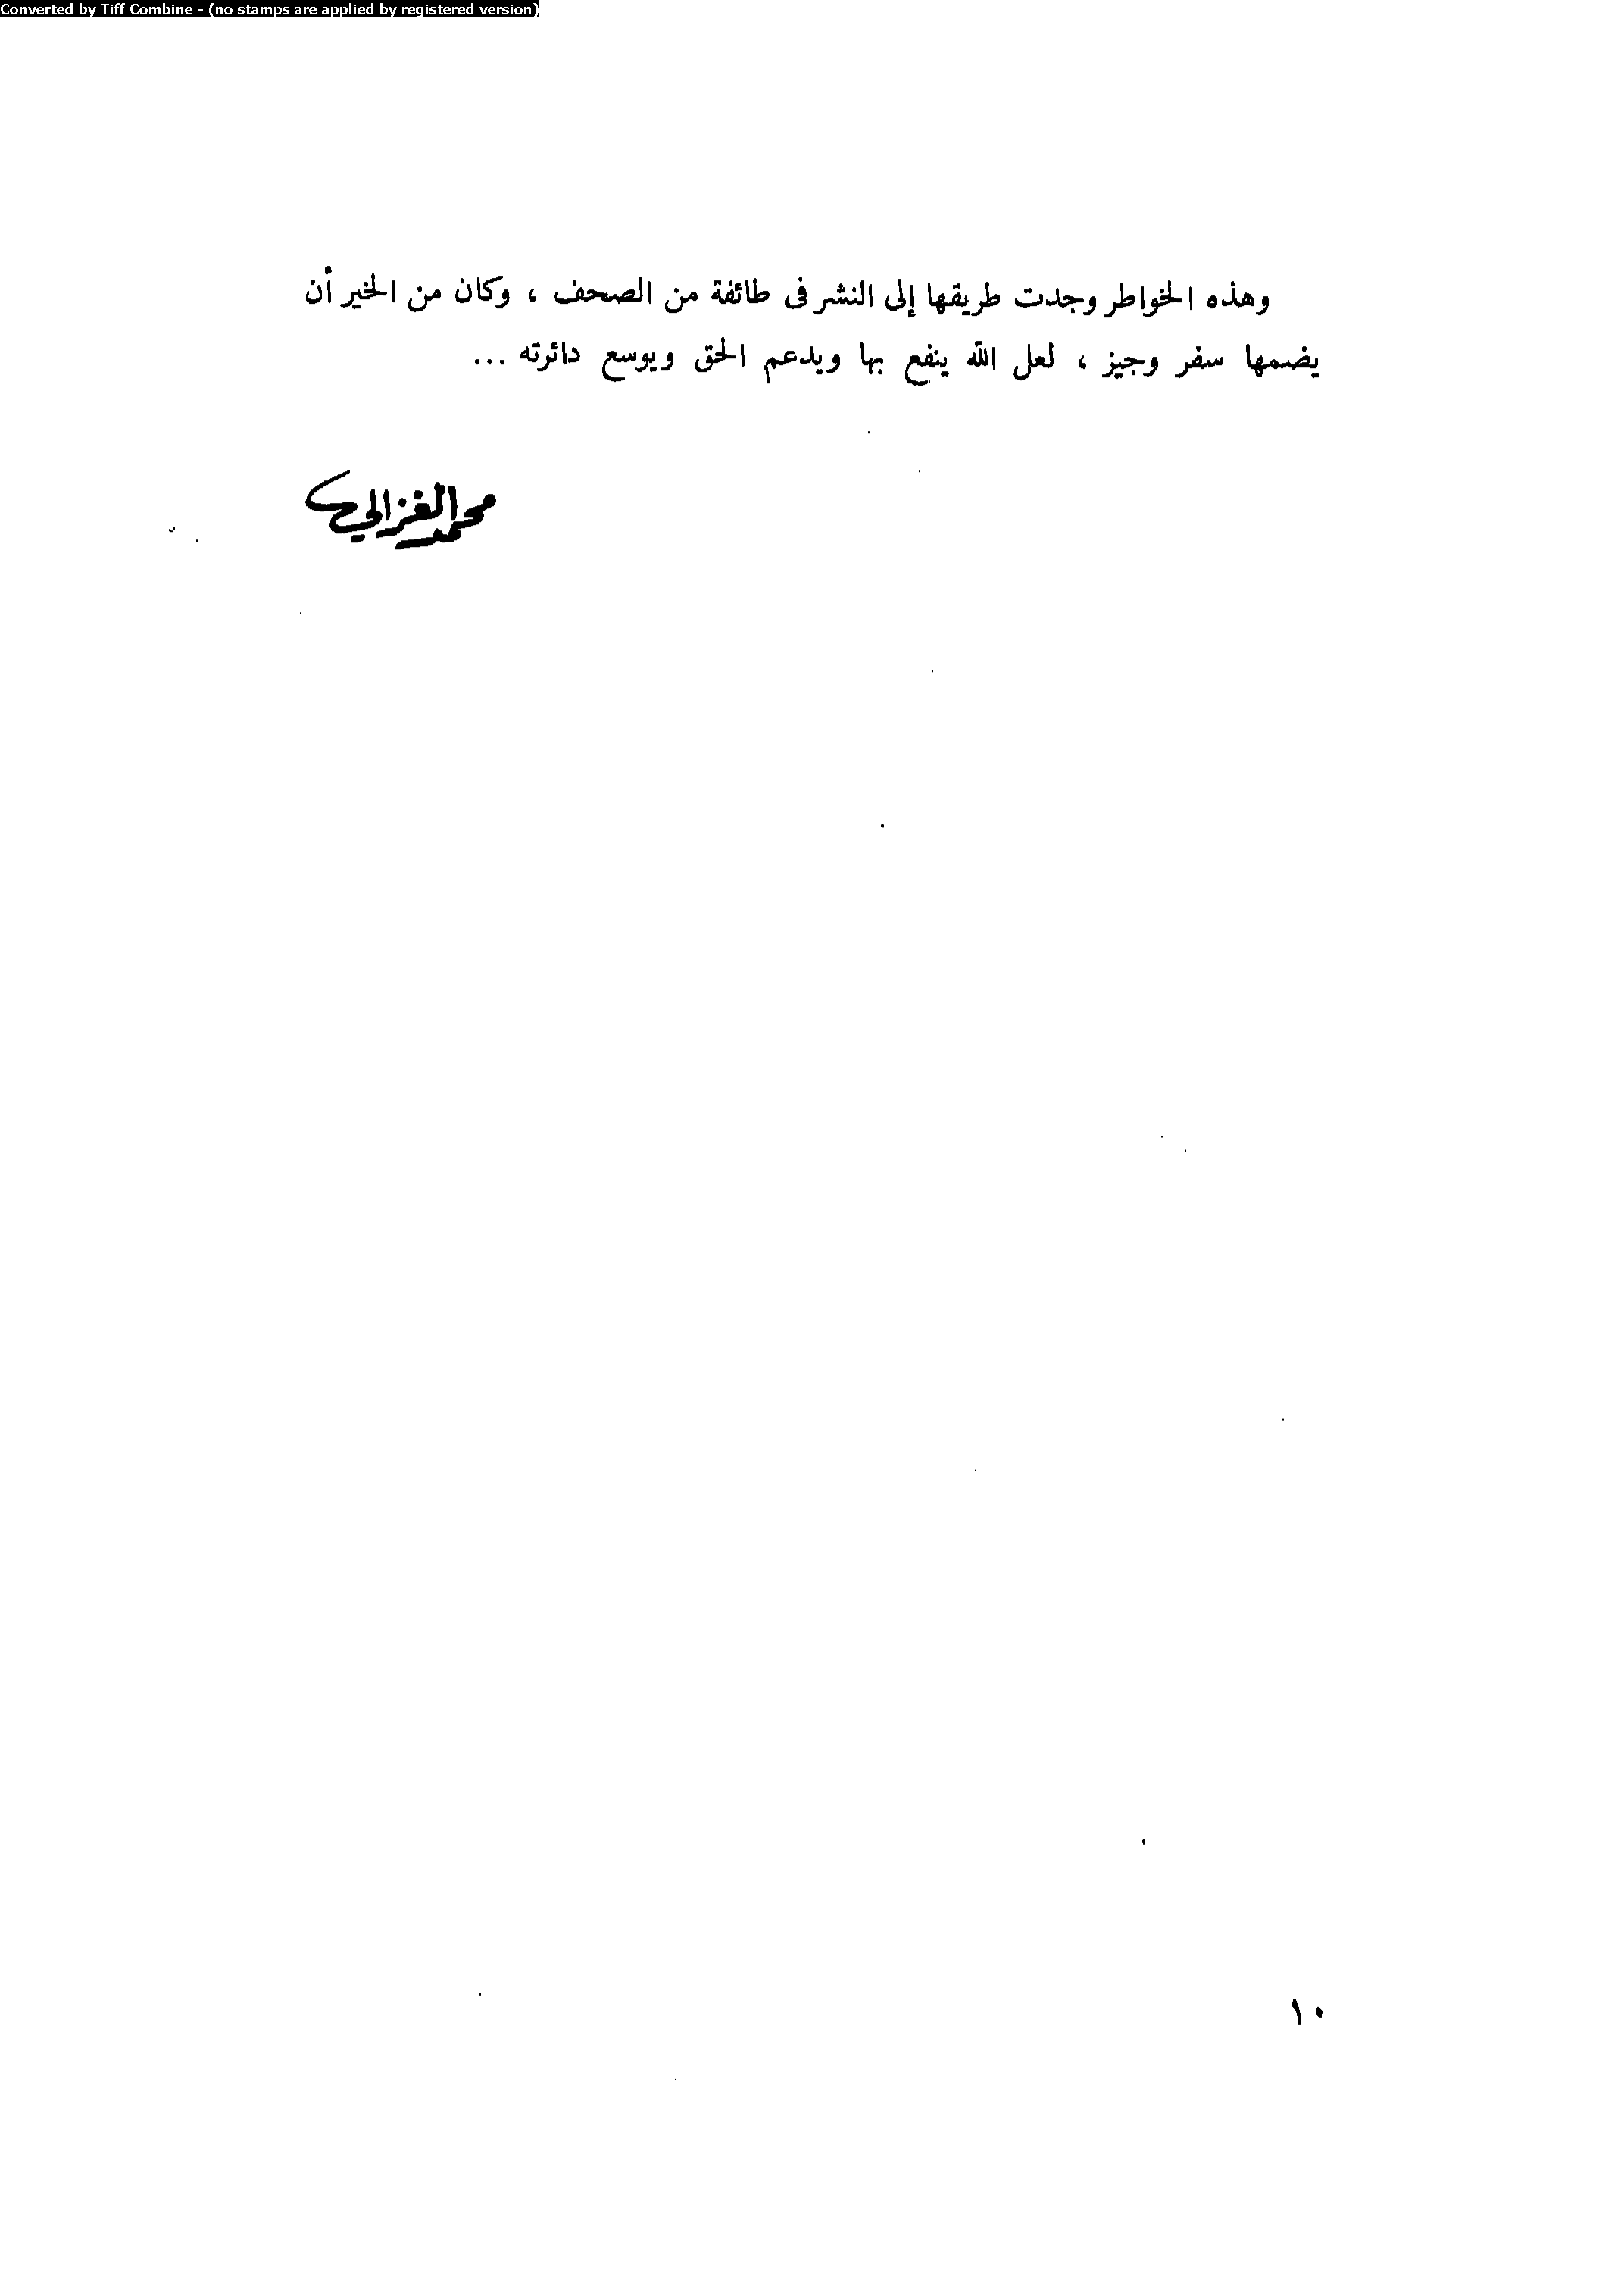 Converted by Tiff Combine - (no stamps are applied by registered version)
وهذه الخواطر وجدت طريقها إلى النشر فى طائفة من الصحف ، وكان من الخير أن
يضمها سفر وجيز ، لعل الله ينفع بها ويدعم الحق ويوسع دائرته ...
محمد الغزالي
١٠